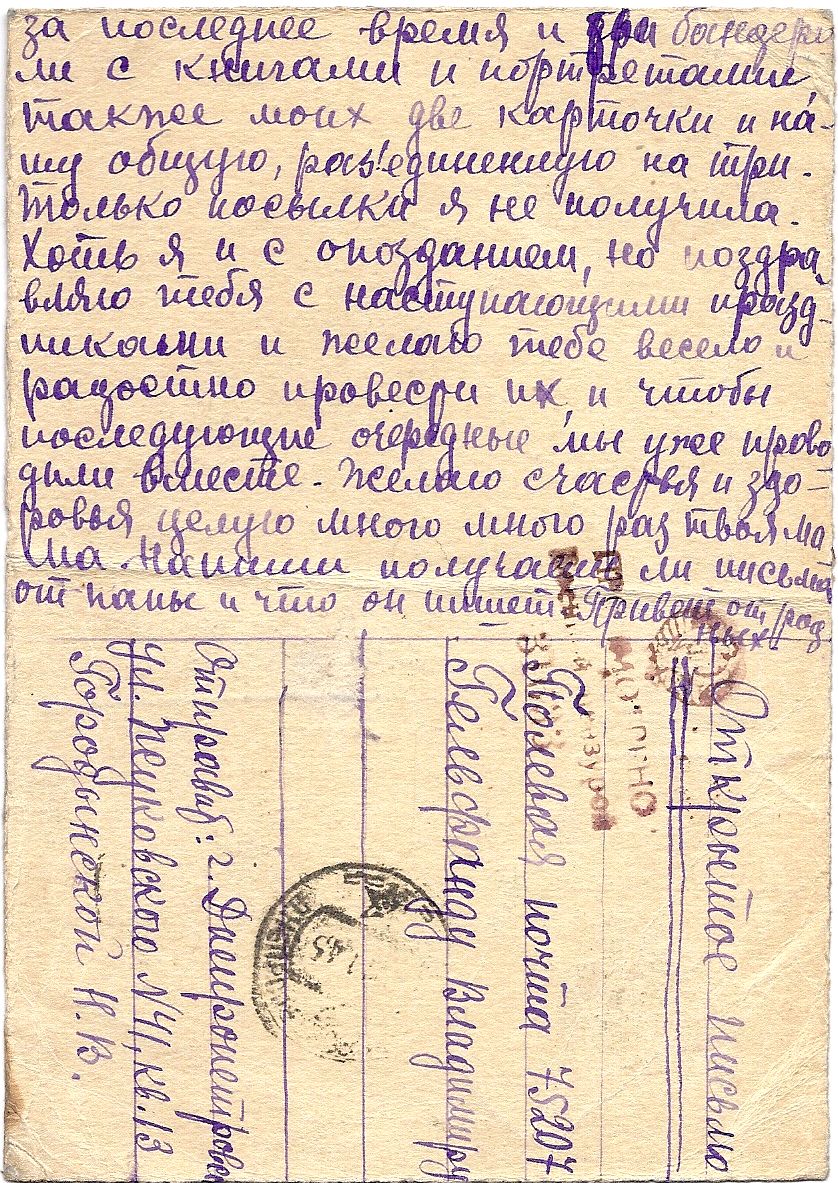 за последнее время и две бандеро
ли с книгами и портретами,
также моих две карточки и на-
шу общую, раз'единенную на три.
Только посылки я не получила.
Хоть я и с опозданием, но поздра
вляю тебя с наступающими празд-
никами и желаю тебе весело и
радостно провести их, и чтобы
последующие очередные мы уже прово
дили вместе. Желаю счастья и здо-
ровья целую много много раз твоя ма
ма. Напиши получаешь ли письма
от папы и что он пишет. Привет от род
ных.
Открытое письмо
Полевая почта 75207
Гельфанду Владимиру
Отправит: г. Днепропетровск
ул. Жуковского N41, кв. 13
Городынской Н.В.